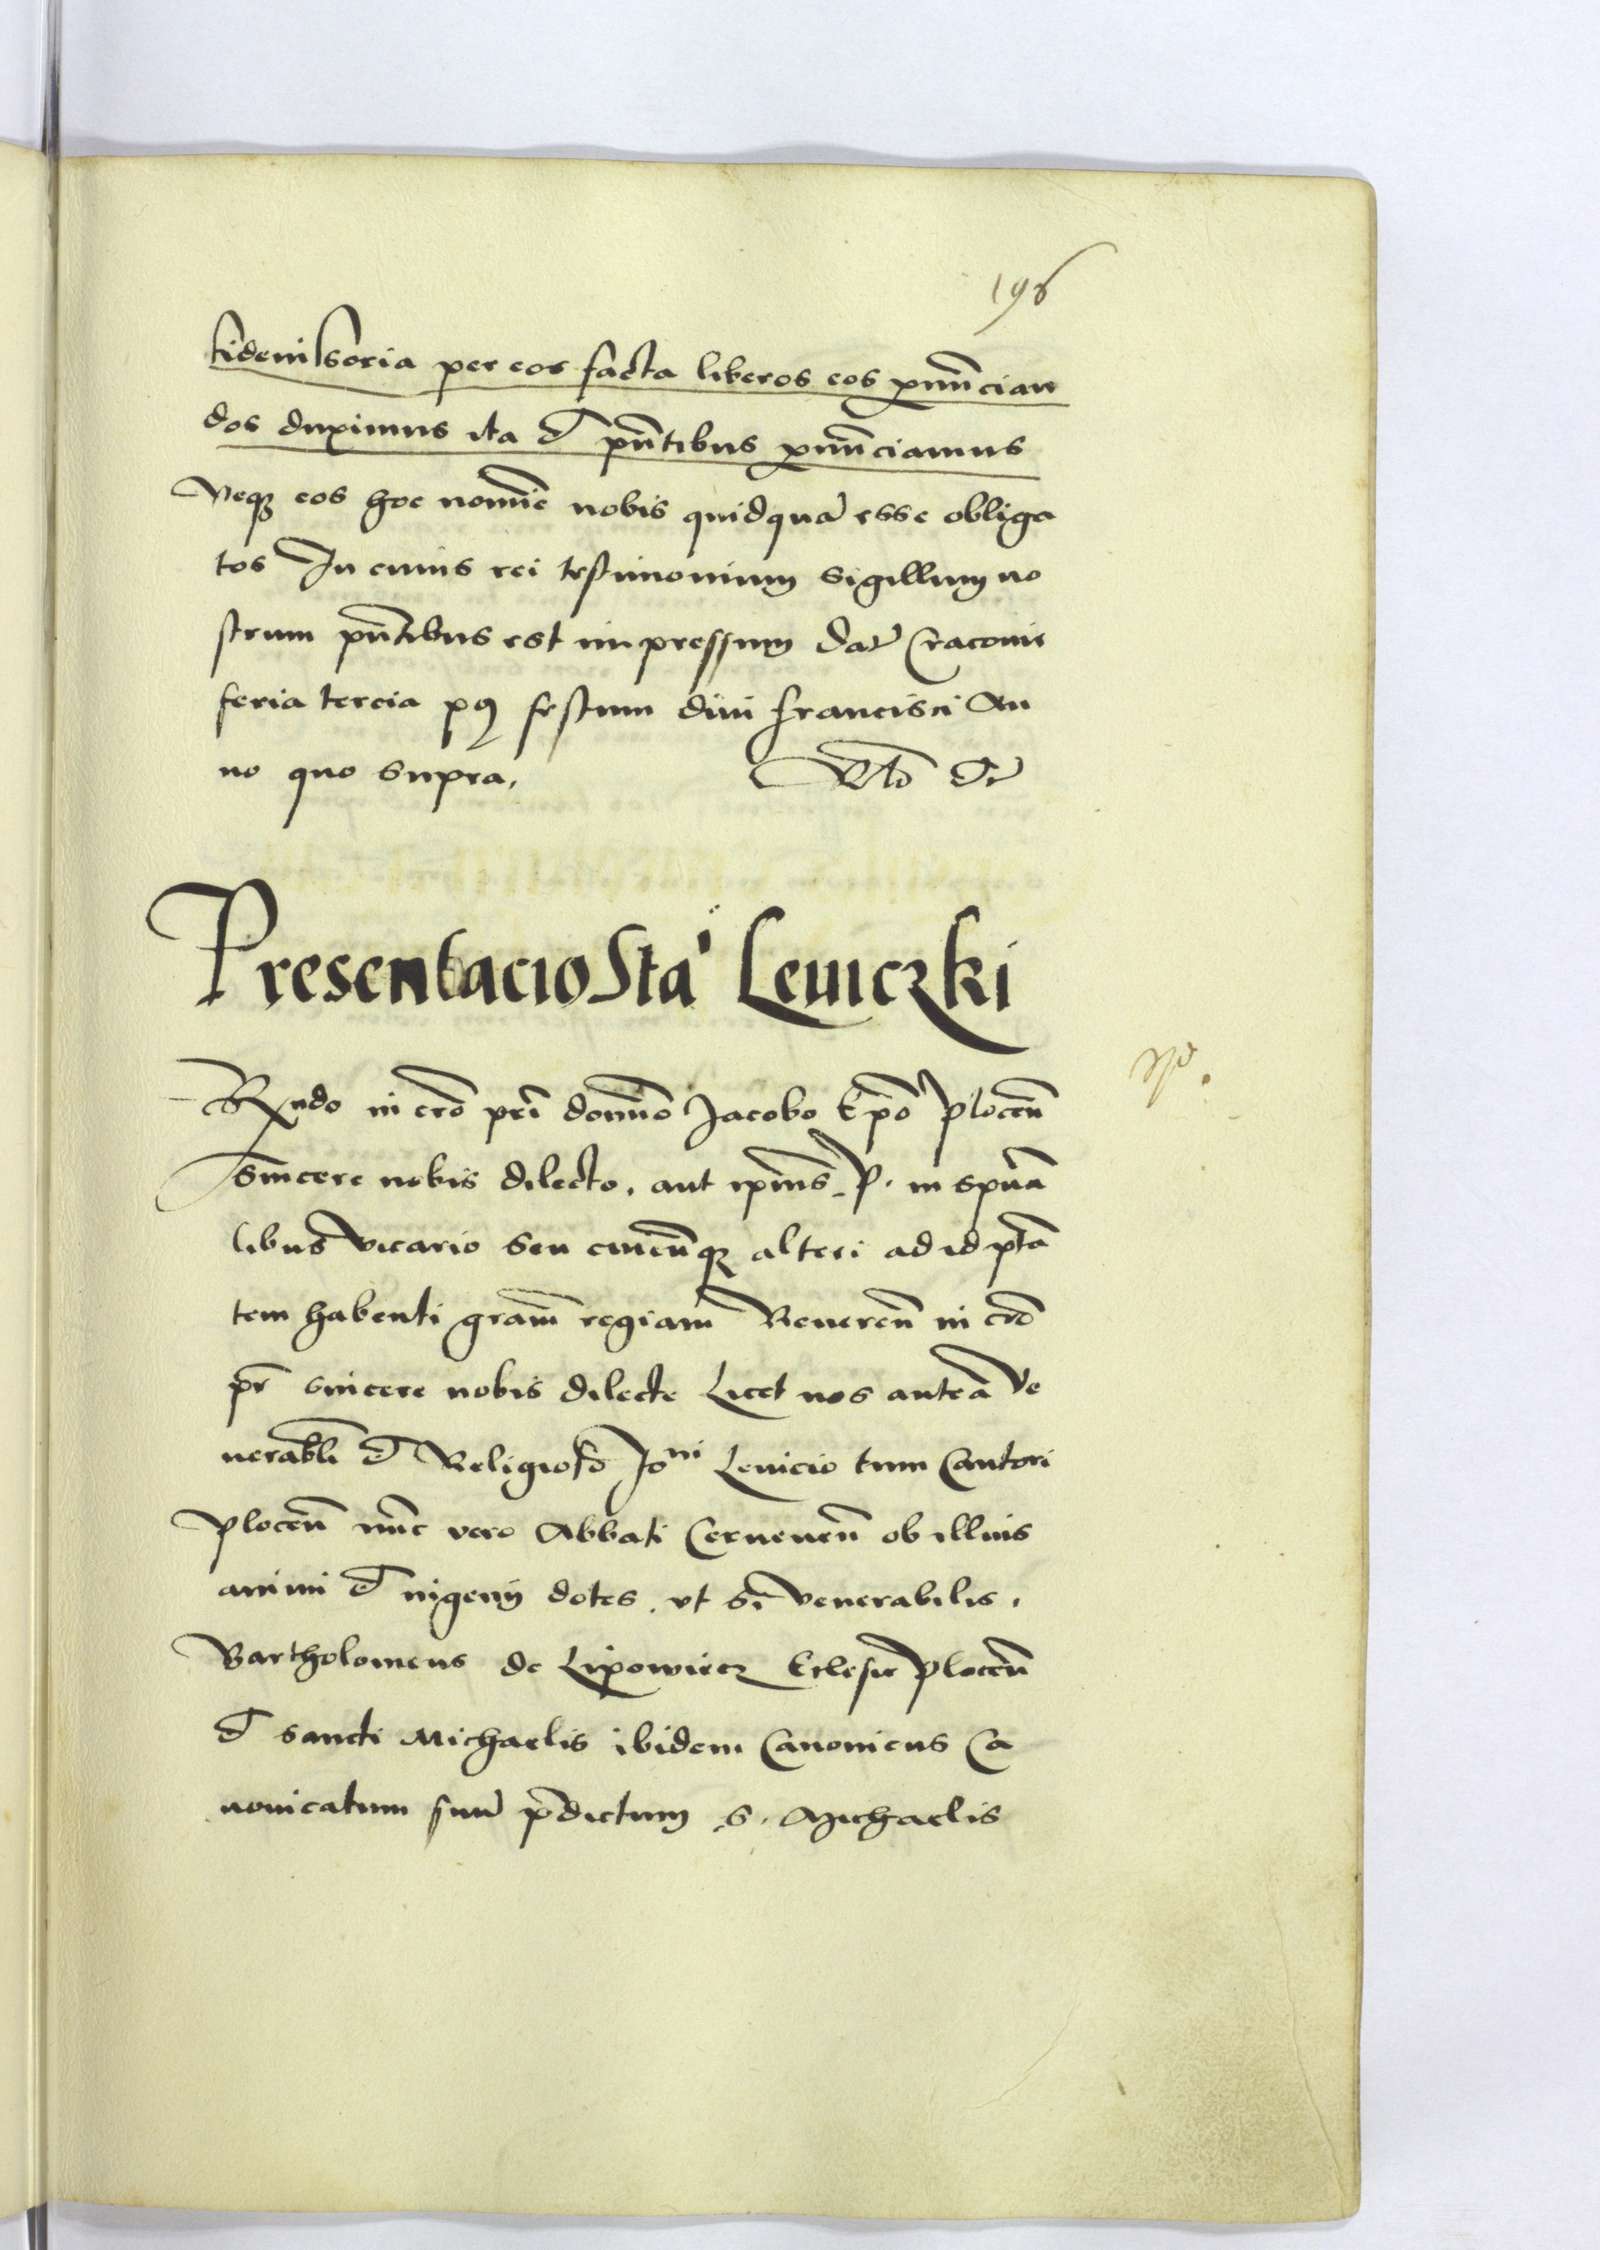 196
fideiussoria per eos facta liberos eos pñuncian
dos duximus ita et pñtibus pñunciamus
Neque eos hoc nomie nobis quidquā esse obliga
tos In cuius rei testimonium sigillum no
strum pñtibus est impressum Dat Cracovie
feria tercia pꝯ festum divi francisci An
no quo supra,
Presentacio Sta Leuiczki
Rndo in cro pri domino Jacobo Epo Plocen
Sincere nobis dilecto, aut ipius P. in spua
libus vicario seu cuicunque alteri ad id pta
tem habenti gram regiam Reveren in cro
pr sincere nobis dilecte Licet nos antea Ve
nerabli et Religioso Joni Levicio tum Cantori
Plocen nunc vero Abbati Cervenen ob illius
animi et ingenij dotes, ut si venerabilis,
Bartholomeus de Lipowiecz Eclesie Plocen
et sancti Michaelis ibidem Canonicus Ca
nonicatum suum predictum S. Michaelis